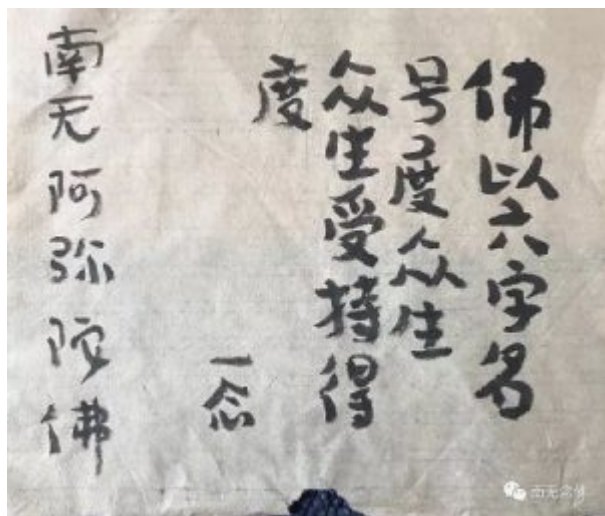 佛以六字名
号度众生
众生受持得
度
一念
南无阿弥陀佛